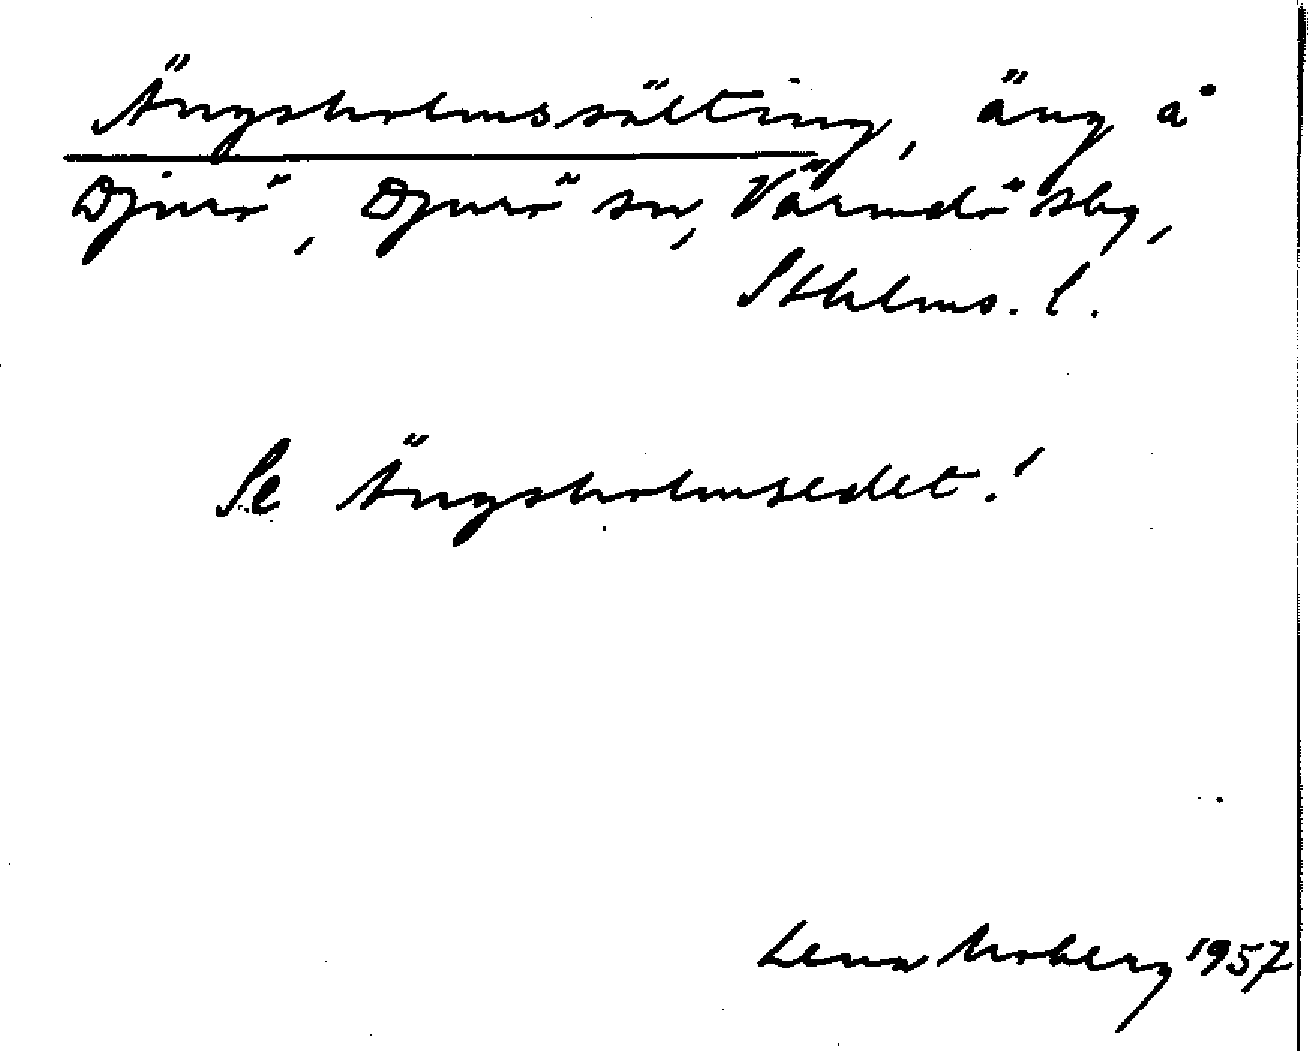 Ängsholmssälting, äng å
Djurö, Djurö sn, Värmdö sbg,
Sthlms. l.
Se Ängsholmsedet!
Lena Moberg 1957